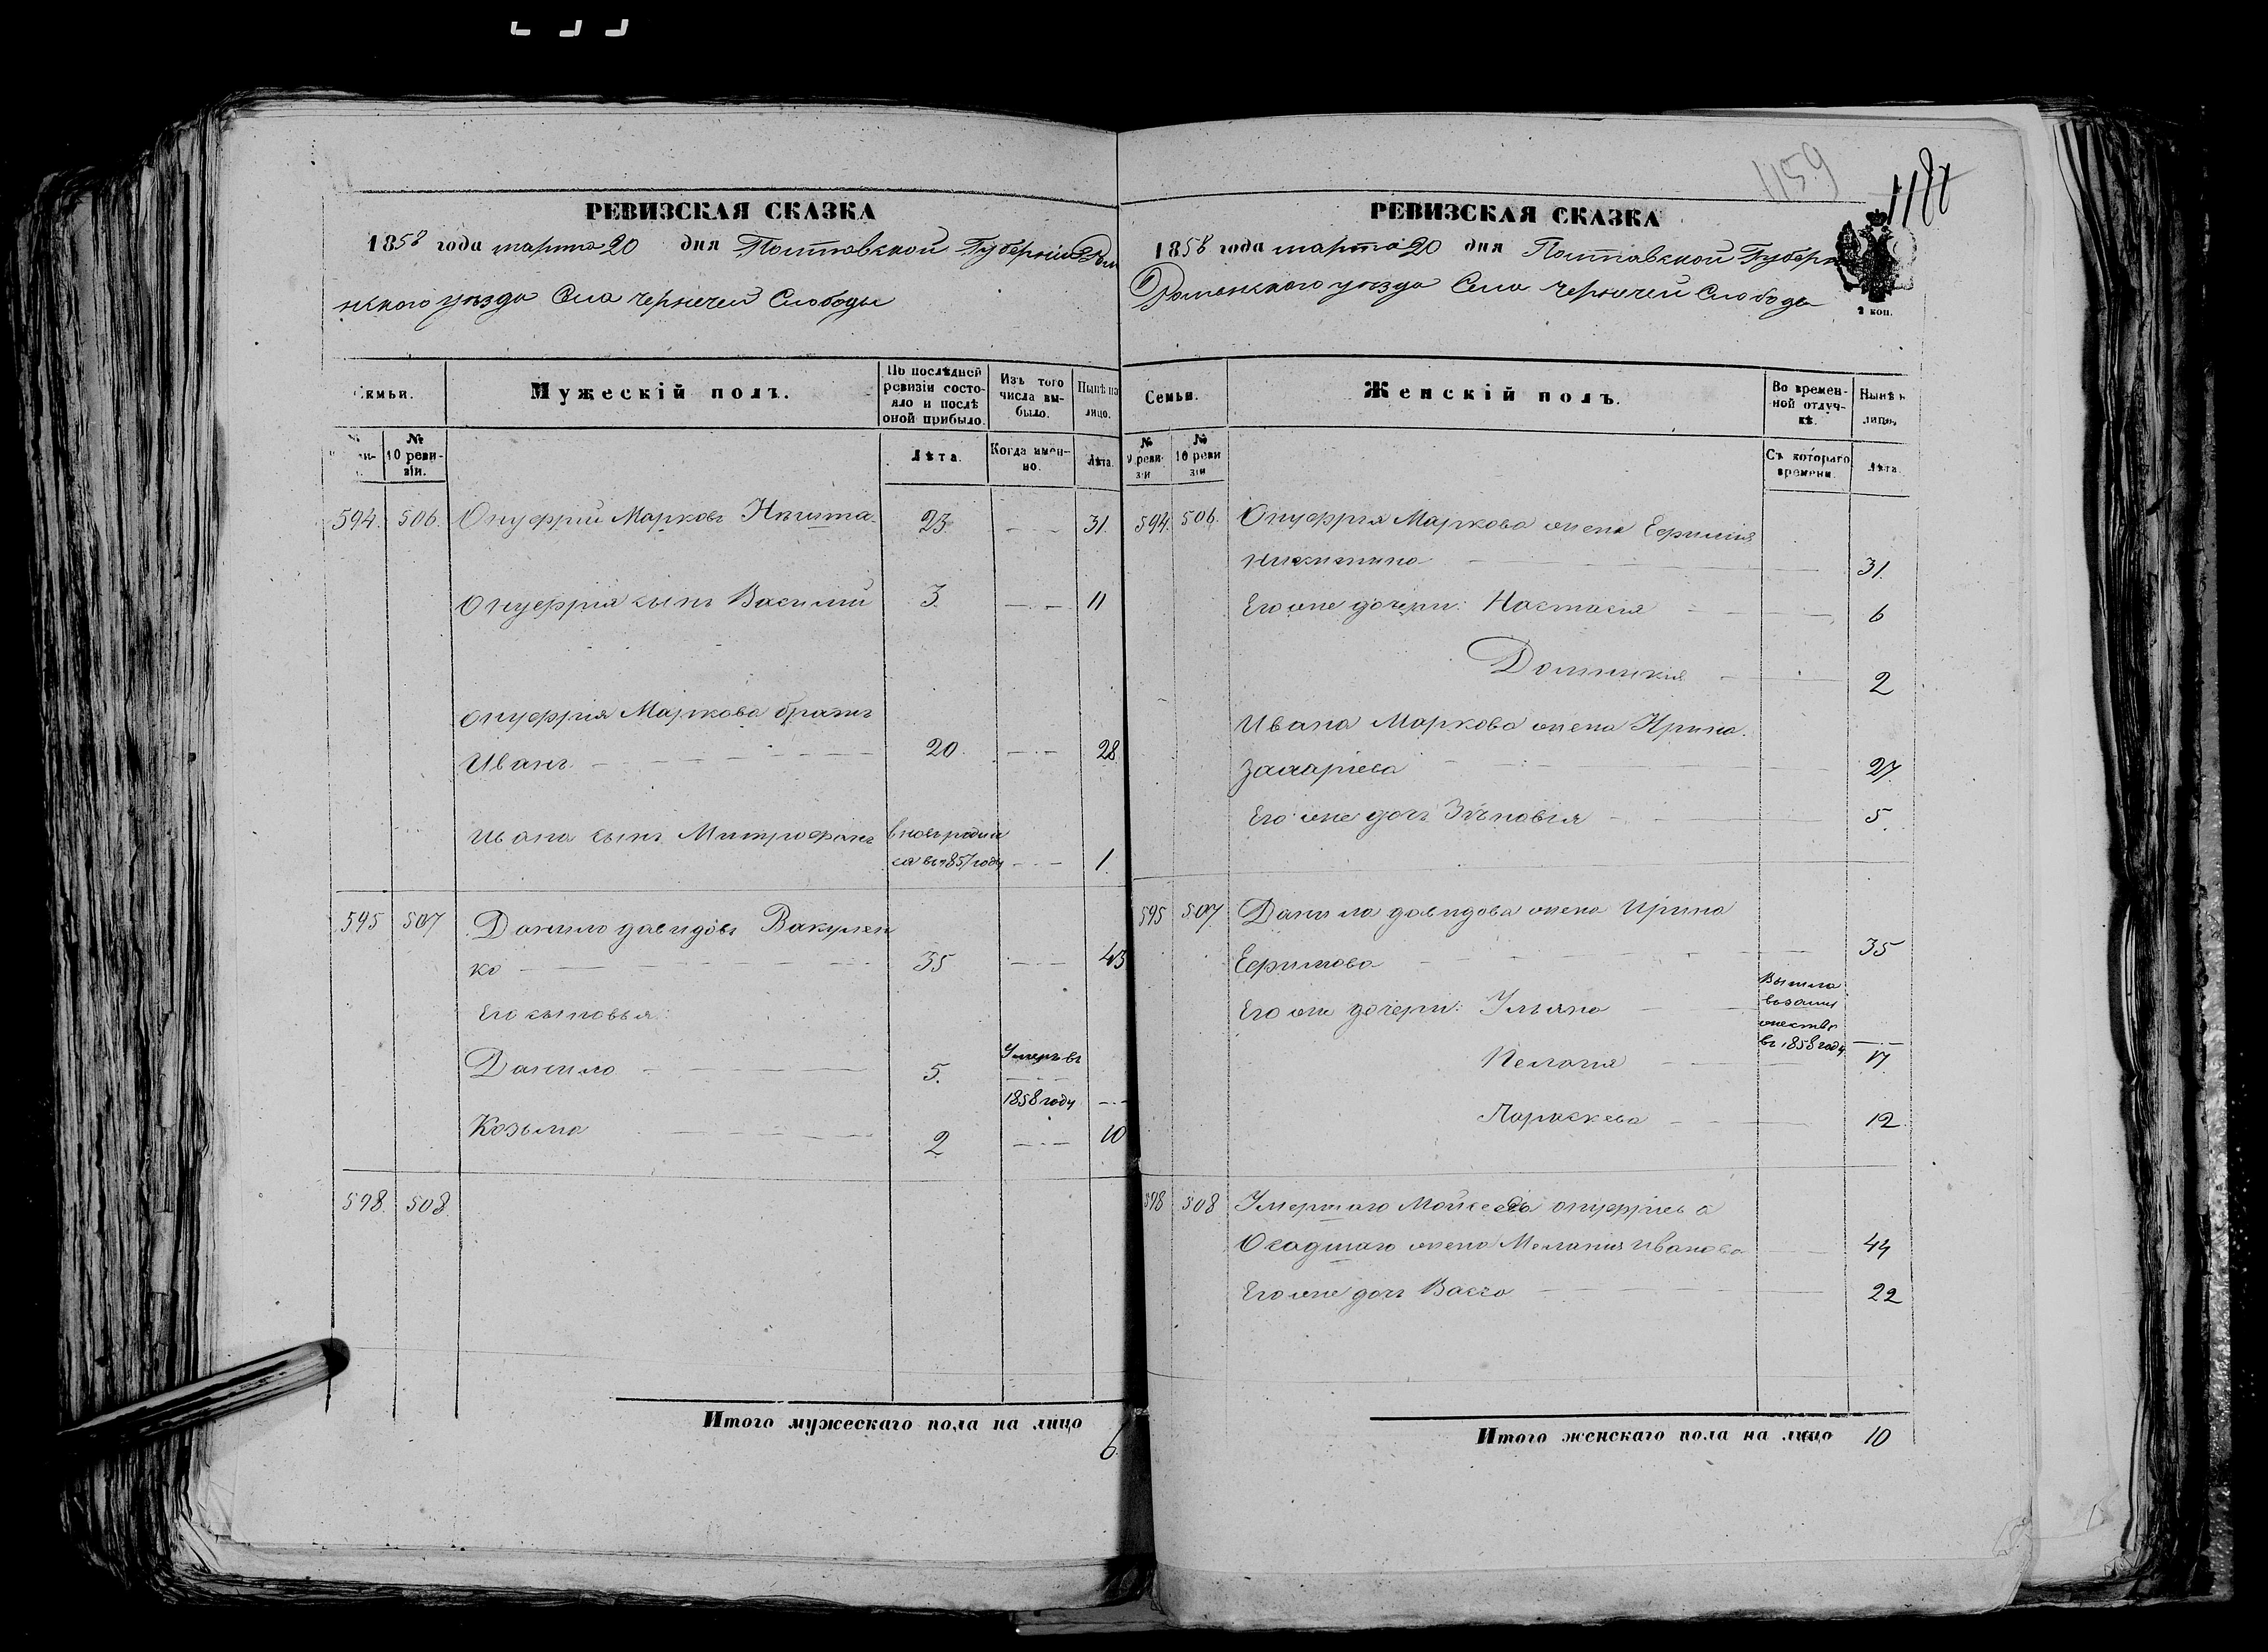 1159
1188
РЕВИЗСКАЯ СКАЗКА
1858 года марта 20 дня Полтавской Губерніи Ром
нского уѣзда Села Чернечей Слободы
Семьи.
Мужескій полъ.
По послѣдней ревизіи состояло и послѣ оной прибыло.
Изъ того числа выбыло.
Нынѣ на лицо.
№
10 ревизіи.
Лѣта.
Когда именно.
Лѣта.
594. 506. Онуфрій Марковъ 23. 31.
Онуфрія сынъ Василій 3. 11
Онуфрія Маркова братъ
Иванъ 20. 28.
Ивана сынъ Митрофанъ вновь родил
ся въ 1857 году 1.
595 507 Данило Давидовъ Вакулен
ко 35 43
Его сыновья:
Данило 5. Умеръ въ
1858 году
Козьма 2 10
598. 508.
Итого мужескаго пола на лицо 6.
РЕВИЗСКАЯ СКАЗКА
1858 года марта 20 дня Полтавской Губерн
Роменского уѣзда Села Чернечей Слободы
2 коп.
Семьи.
Женскій полъ.
Во временной отлучкѣ.
Нынѣ лицо,
№ ревизіи
№ 10 ревизіи
Съ котораго времени.
Лѣта.
594. 506. Онуфрія Маркова жена Ефимія
Никитина 31.
Его же дочери: Настасія 6
Домникія 2
Ивана Маркова жена Ирина
Захаріева 27.
Его же дочь Зѣновія 5.
595 507 Данила Давидова жена Ирина
Ефимова 35
Его же дочери: Ульяна Вышла
въ заму
жество
въ 1858 году
Пелагія 17.
Параскева 12.
598 508 Умершаго Мойсея Онуфріева
Осадшаго жена Меланія Иванова 44
Его же дочь Васса 22
Итого женскаго пола на лицо 10